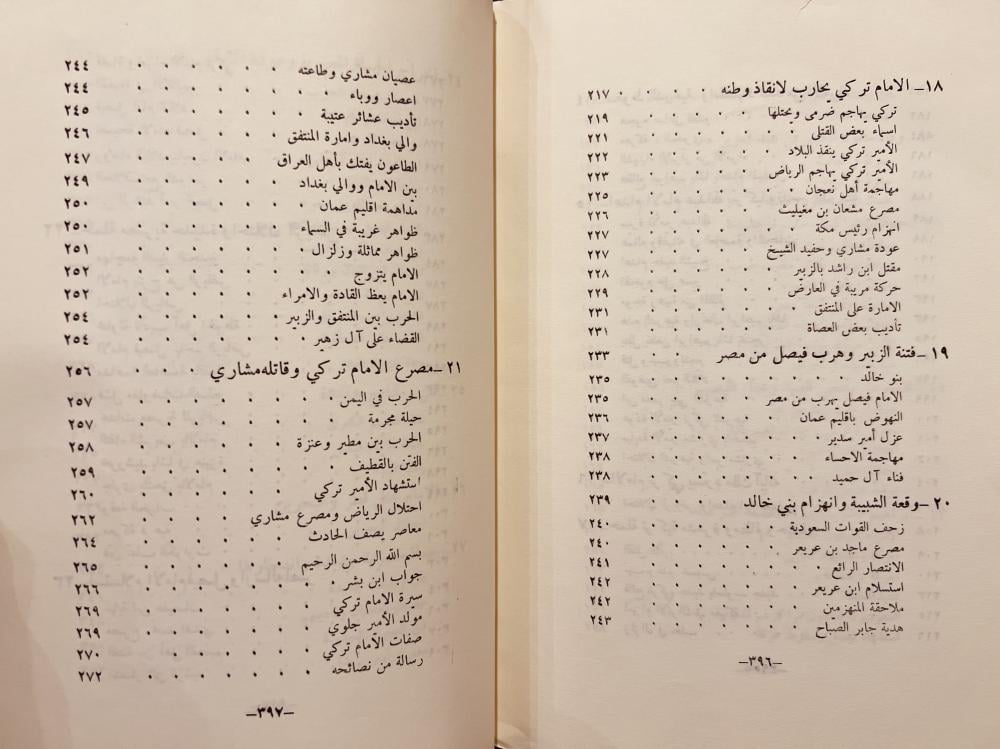 ١٨ـ الامام تركي يحارب لانقاذ وطنه . . . . ٢١٧
تركي يهاجم ضرمى ويحتلها . . . . . . ٢١٩
اسماء بعض القتلى . . . . . . . ٢٢١
الأمير تركي ينقذ البلاد . . . . . . ٢٢٢
الأمير تركي يهاجم الرياض . . . . . . ٢٢٣
مهاجمة أهل نعجان . . . . . . . ٢٢٥
مصرع مشعان بن مغيليث . . . . . . ٢٢٦
انهزام رئيس مكة . . . . . . . ٢٢٧
عودة مشاري وحفيد الشيخ . . . . . . ٢٢٧
مقتل ابن راشد بالزبير . . . . . . ٢٢٨
حركة مريبة في العارض . . . . . . ٢٢٩
الامارة على المنتفق . . . . . . . ٢٣١
تأديب بعض العصاة . . . . . . . ٢٣١
١٩ ـ فتنة الزبير وهرب فيصل من مصر . . . ٢٣٣
بنو خالد . . . . . . . . ٢٣٥
الامام فيصل يهرب من مصر . . . . . . ٢٣٥
النهوض باقليم عمان . . . . . . ٢٣٦
عزل أمير سدير . . . . . . . ٢٣٧
مهاجمة الاحساء . . . . . . . ٢٣٨
فناء آل حميد . . . . . . . ٢٣٨
٢٠ ـ وقعة الشبيبة وانهزام بني خالد . . . . ٢٣٩
زحف القوات السعودية . . . . . . ٢٤٠
مصرع ماجد بن عريعر . . . . . . ٢٤٠
الانتصار الرائع . . . . . . . ٢٤١
استسلام ابن عريعر . . . . . . . ٢٤٢
ملاحقة المنهزمين . . . . . . . ٢٤٢
هدية جابر الصباح . . . . . . . ٢٤٣
ـ٣٩٦ـ
عصيان مشاري وطاعته . . . . . . ٢٤٤
اعصار ووباء . . . . . . . . ٢٤٤
تأديب عشائر عتيبة . . . . . . . ٢٤٥
والي بغداد وامارة المنتفق . . . . . . ٢٤٦
الطاعون يفتك بأهل العراق . . . . . . ٢٤٧
بين الامام ووالي بغداد . . . . . . ٢٤٩
مداهمة اقليم عمان . . . . . . . ٢٥٠
ظواهر غريبة في السماء . . . . . . ٢٥٠
ظواهر مماثلة وزلزال . . . . . . . ٢٥١
الامام يتزوج . . . . . . . . ٢٥٢
الامام يعظ القادة والامراء . . . . . . ٢٥٢
الحرب بين المنتفق والزبير . . . . . . ٢٥٤
القضاء على آل زهير . . . . . . . ٢٥٤
٢١ ـ مصرع الامام تركي وقاتله مشاري . . . ٢٥٦
الحرب في اليمن . . . . . . . ٢٥٧
حيلة مجرمة . . . . . . . . ٢٥٧
الحرب بين مطير وعنزة . . . . . . ٢٥٨
الفتن بالقطيف . . . . . . . ٢٥٩
استشهاد الأمير تركي . . . . . . . ٢٦٠
احتلال الرياض ومصرع مشاري . . . . . ٢٦٢
معاصر يصف الحادث . . . . . . . ٢٦٤
بسم الله الرحمن الرحيم . . . . . . ٢٦٥
جواب ابن بشر . . . . . . . . ٢٦٦
سيرة الامام تركي . . . . . . . ٢٦٩
مولد الأمير جلوي . . . . . . . ٢٦٩
صفات الامام تركي . . . . . . . ٢٧٠
رسالة من نصائحه . . . . . . . ٢٧٢
ـ٣٩٧ـ